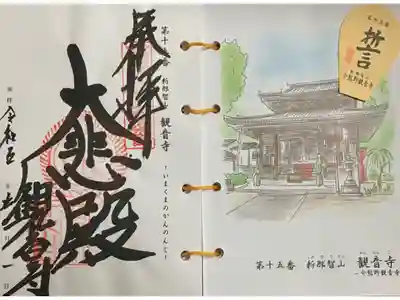 奉拝
第十 番 新那智山 観音寺
- いまくまのかんのんじ -
大悲殿
観音寺
令和
月一日
第十五番
誓
今熊野観音寺
第十五番 新那智山 観音寺
- 今熊野観音寺 -